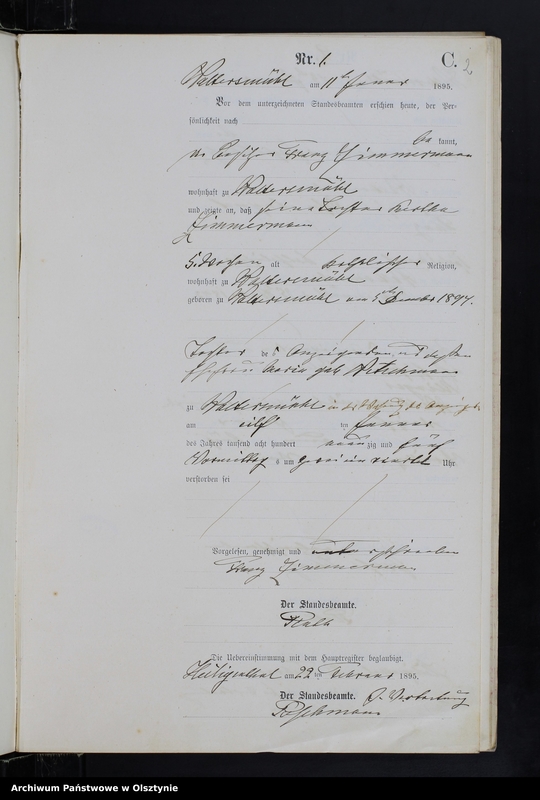 Nr. 1.
C.
2
Waltersmühl am 11ten Januar 1895.
Vor dem unterzeichneten Standesbeamten erschien heute, der Per-
sönlichkeit nach
be kannt,
der Besitzer Franz Zimmermann
wohnhaft zu Waltersmühl
und zeigte an, daß seine Tochter Bertha
Zimmermann
5 Wochen alt katholischer Religion,
wohnhaft zu Waltersmühl
geboren zu Waltersmühl am 5ten Dezember 1894.
Tochter des Anzeigenden und dessen
Ehefrau Maria geb
zu Waltersmühl in der Wohnung des Anzeigenden
am elf ten Januar
des Jahres tausend acht hundert neun zig und fünf
Vormittags um Uhr
verstorben sei
Vorgelesen, genehmigt und unterschrieben
Franz Zimmermann
Der Standesbeamte.
Die Uebereinstimmung mit dem Hauptregister beglaubigt.
Heiligenthal am 22 ten Februar 1895.
Der Standesbeamte. In Vertretung
Poschmann
Archiwum Państwowe w Olsztynie